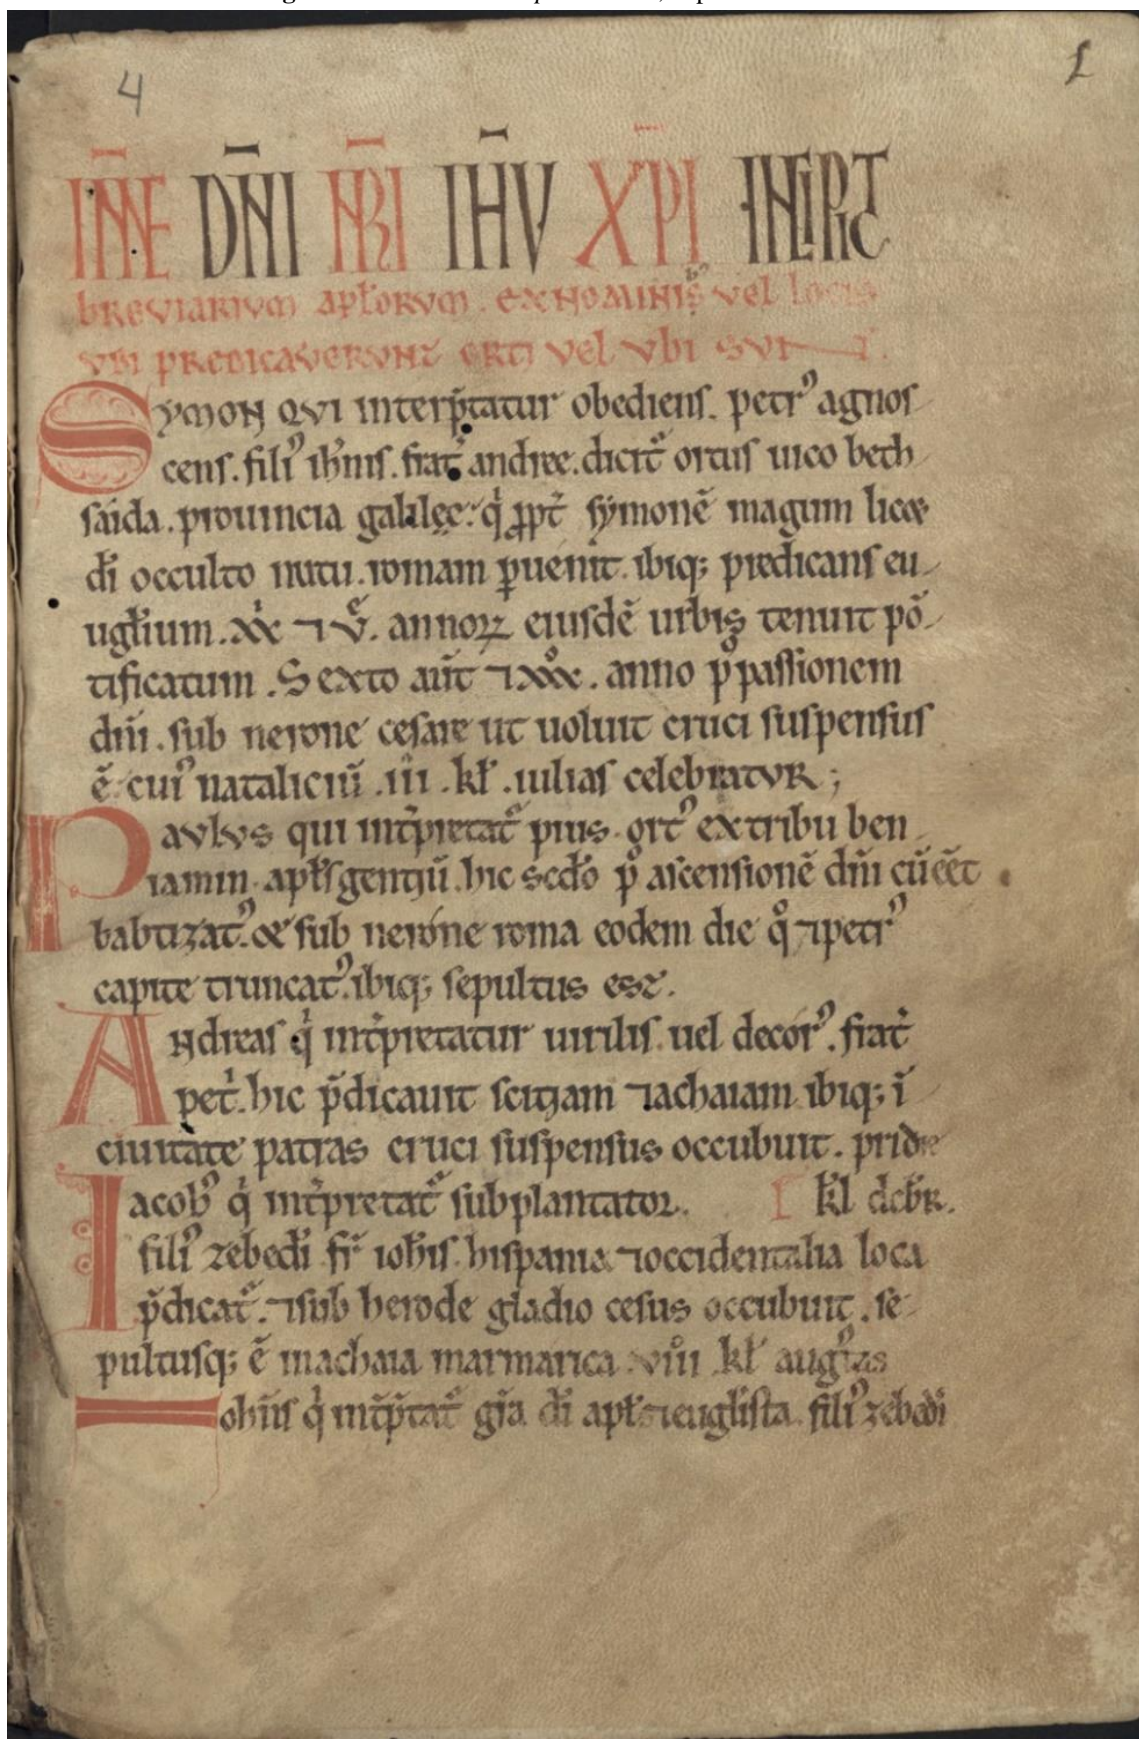 4
1
IN̄NE DN̄I NR̄I IHV̄ XP̄I INCIPIT
breviarivm apƚorvm . ex nominib⁹ vel locis
vbi predicavervnt orti vel vbi svnt .
Symon qvi interp̄tatur obediens . petr⁹ agnos
cens . fili⁹ ioh̄nis . frat̄ andree . dicit᷑ ortus uico beth
saida . prouincia galileę . qͥ ꝓpt̄ symonē magum licę
dī occulto nutu . romam ꝑuenit . ibiq; predicans eu
ugƚium . xx ⁊ v . annoꝝ eiusdē urbis tenuit pō
tificatum . Sexto aūt ⁊ xxx° . anno p⁹ passionem
dn̄i . sub nerone cesare ut uoluit cruci suspensus
ē . cui⁹ nataliciū . iii . kƚ . iulias celebratvr ;
Pavlvs qui int̄pretat᷑ pius . ort⁹ ex tribu ben
iamin . apƚs gentiū . hic scďo p⁹ ascensionē dn̄i cū eēt
babtizat⁹ . & sub nerone roma eodem die q° ⁊ petr⁹
capite truncat⁹ . ibiq; sepultus est .
Andreas qͥ int̄pretatur uirilis . uel decor⁹ . frat̄
petͥ . hic p̄dicauit scitiam ⁊ achaiam ibiq; ī
ciuitate patras cruci suspensus occubuit . pridie
Iacob⁹ qͥ int̄pretat᷑ subplantator . kƚ dc̄br̄ .
fili⁹ zebedēi fr̄ ioh̄is . hispania ⁊ occidentalia loca
p̄dicat᷑ . ⁊ sub herode gladio cesus occubuit . se
pultusq; ē in achaia marmarica . viii . kƚ augustas
Ioh̄is qͥ int̄p̄tat᷑ gr̄a dī apƚs ⁊ euugƚista . fili⁹ zebedei